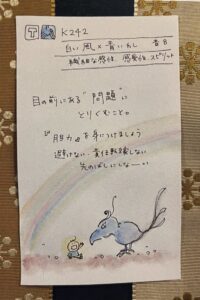 K242
白い風×青いわし 音8
繊細な感性 感受性 スピリット
目の前にある"問題"に
とりくむこと。
"胆力"を身につけましょう
逃げない・責任転嫁しない
先のばしにしなーい